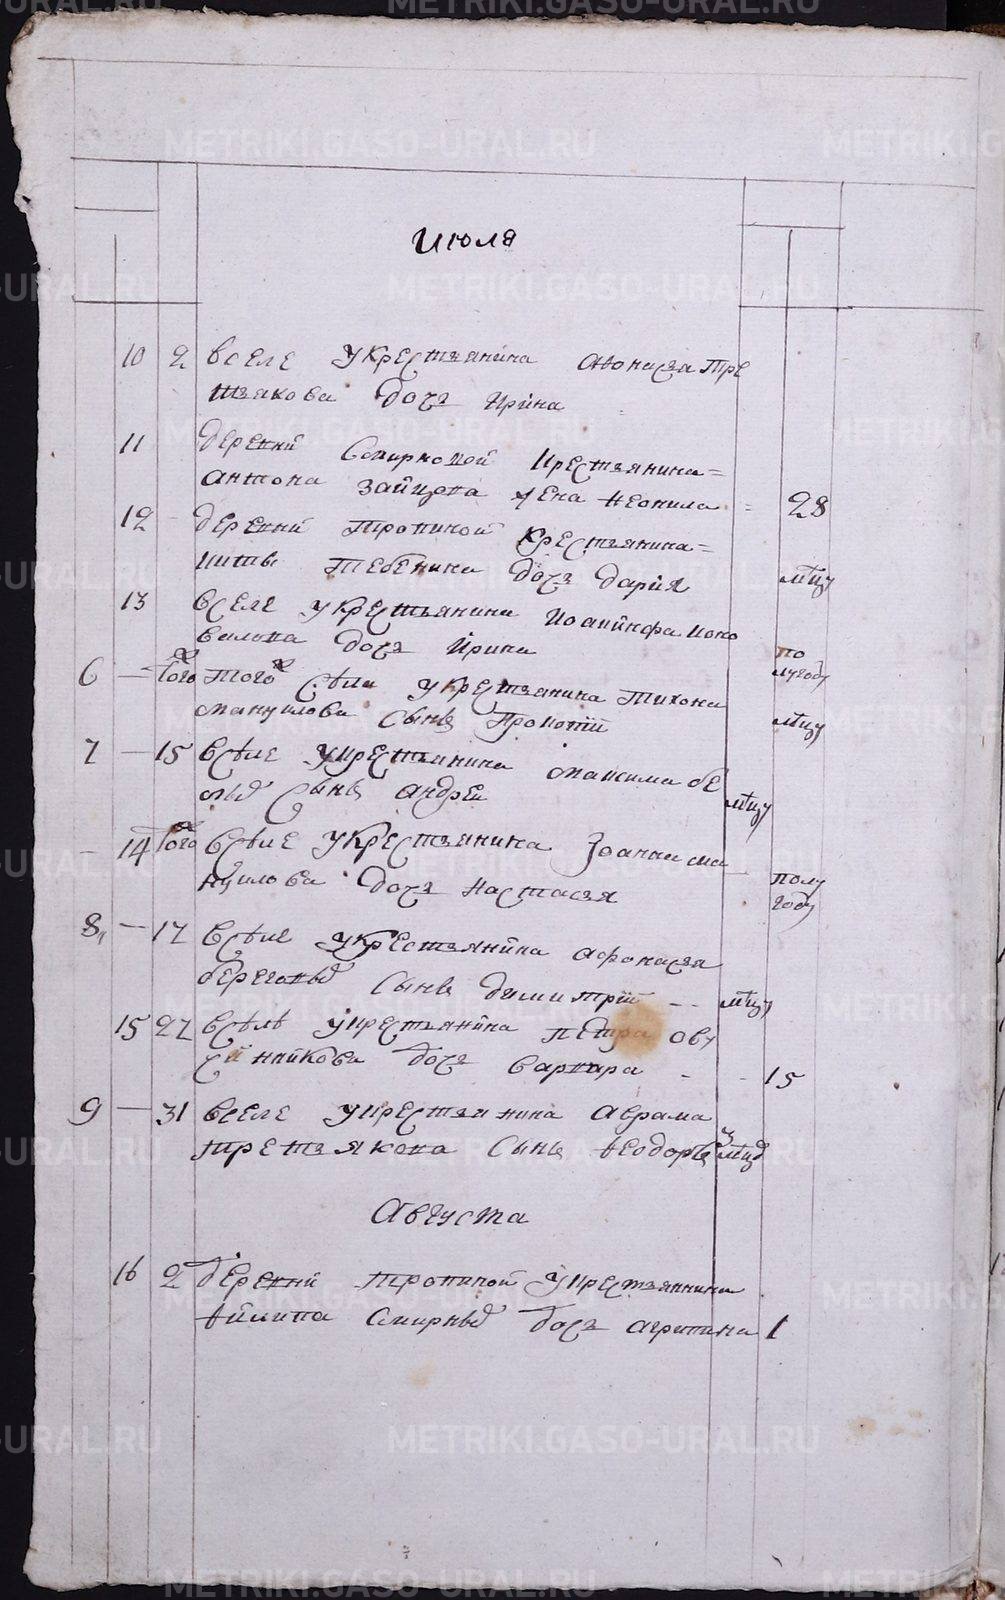 Июля
10 2 Вселе укрестьянина Афонасья Тре
тьякова дочь Ирина
11 деревни Смирновой крестьянина=
Антона Зайцова жена Неонила = 28
12 деревни Тропиной крестьянина=
Никиты Тебенина дочь Дария мцу
13 Вселе укрестьянина
дочь Ирина полугоду
6 — того того села укрестьянина Тихона
Мануилова сынъ Прокопiй мцу
7 — 15 Вселе укрестьянина Максима Бе
лыхъ сынъ Андрей мцу
14 того Вселе укрестьянина Иоанна Ма
нуилова дочь Настасья полу
году
8 — 17 Вселе укрестьянина Афонасья
Береговыхъ сынъ Димитрiй — мцу
15 27 Вселе укрестьянина Петра Овч
инникова дочь Варвара - - 15
9 — 31 Вселе укрестьянина Аврама
Третьякова сынъ Ѳеодоръ 3 мцъ
Августа
16 2 деревни Тропиной укрестьянина
Ѳилипа Смирныхъ дочь Агрипина 1
METRIKI.GASO-URAL.RU